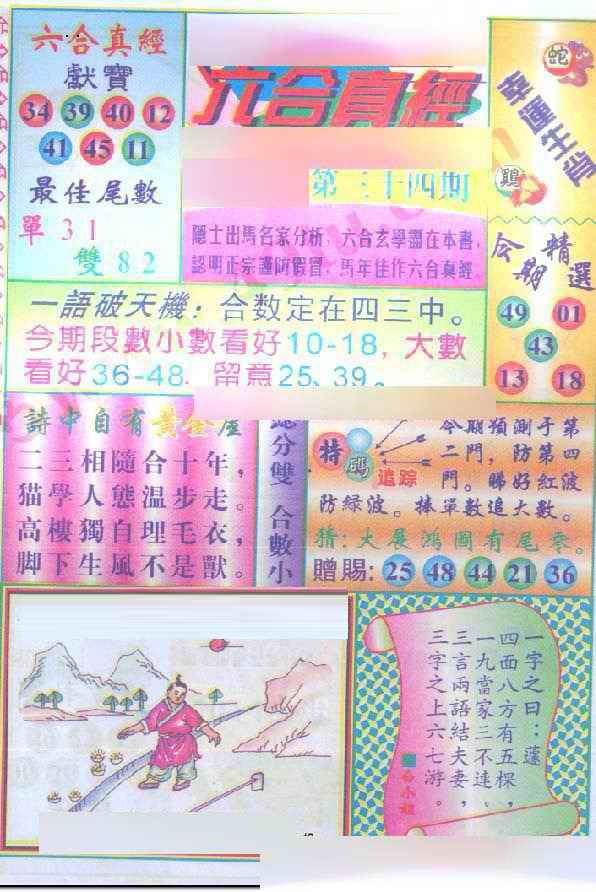 六合真經
獻寶
34 39 40 12
41 45 11
最佳尾數
單 31
雙 82
六合真經
第三十四期
隱士出馬名家分析，六合玄學盡在本書，
認明正宗謹防假冒，馬年佳作六合真經。
蛇
幸運生肖
鷄
今期精選
49 01
43
13 18
一語破天機：合数定在四三中。
今期段數小數看好10-18，大數
看好36-48，留意25、39。
詩中自有黃金屋
二三相隨合十年，
猫學人態温步走。
高樓獨自理毛衣，
脚下生風不是獸。
總分雙 合數小
特碼
追踪
今期預測于第
二門，防第四
門。睇好紅波
防緑波。捧單數追大數。
猜：大展鴻圖有尾零。
贈賜：25 48 44 21 36
一字之曰：蓬
四面八方有五棵，
一九當家三不連。
三言兩語結夫妻，
三字之上六七游。